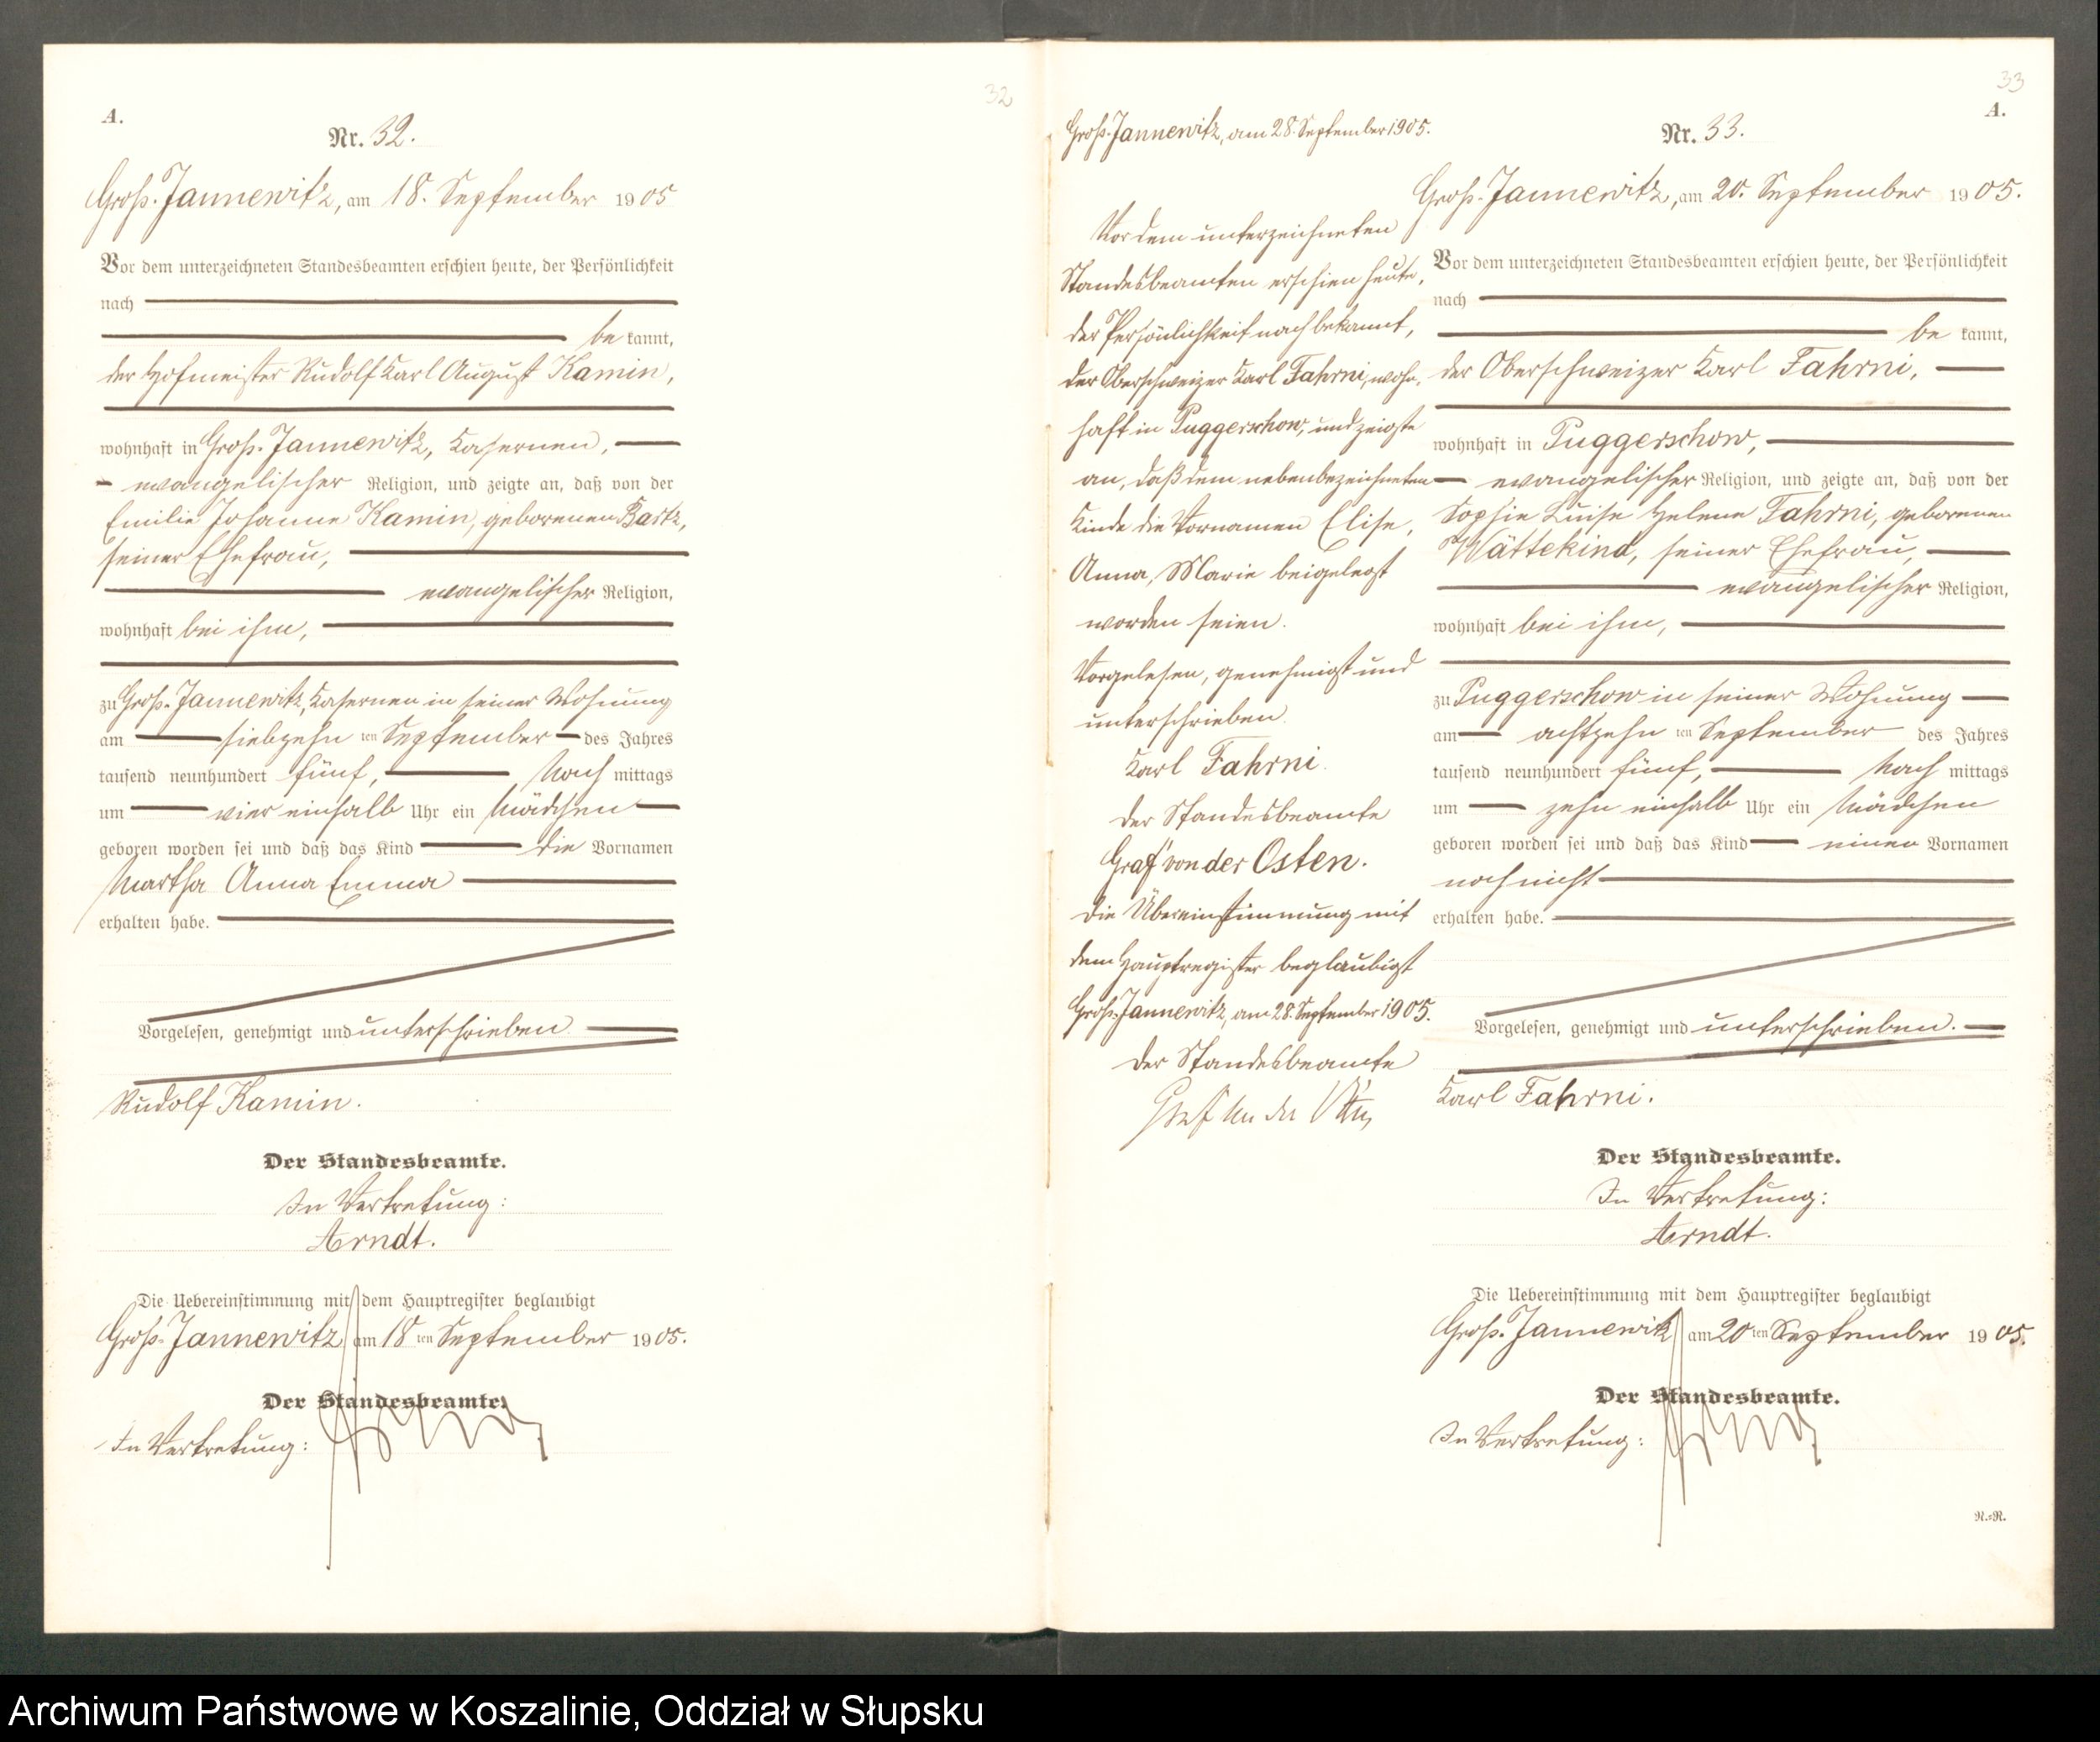 32
A.
Nr. 32.
Groß-Jannewitz, am 18. September 1905
Vor dem unterzeichneten Standesbeamten erschien heute, der Persönlichkeit
nach
be kannt,
der Hofmeister Rudolf Karl August Kamin,
wohnhaft in Groß-Jannewitz, Kasernen,
evangelischer Religion, und zeigte an, daß von der
Emilie Johanne Kamin, geborenen Bartz,
seiner Ehefrau,
evangelischer Religion,
wohnhaft bei ihm,
zu Groß-Jannewitz, Kasernen in seiner Wohnung
am siebzehn ten September des Jahres
tausend neunhundert fünf, Nach mittags
um vier einhalb Uhr ein Mädchen
geboren worden sei und daß das Kind die Vornamen
Martha Anna Emma
erhalten habe.
Vorgelesen, genehmigt und unterschrieben
Rudolf Kamin.
Der Standesbeamte.
In Vertretung:
Arndt.
Die Uebereinstimmung mit dem Hauptregister beglaubigt
Groß-Jannewitz am 18 ten September 1905.
Der Standesbeamte.
In Vertretung:
Groß-Jannewitz, am 28. September 1905.
Vor dem unterzeichneten
Standesbeamten erschien heute,
der Persönlichkeit nach bekannt,
der Oberschweizer Karl Fahrni, wohn-
haft in Puggerschow, und zeigte
an, daß dem nebenbezeichneten
Kinde die Vornamen Elise,
Anna, Marie beigelegt
worden seien.
Vorgelesen, genehmigt und
unterschrieben.
Karl Fahrni.
Der Standesbeamte
Graf von der Osten.
Die Übereinstimmung mit
dem Hauptregister beglaubigt
Groß-Jannewitz, am 28. September 1905.
Der Standesbeamte
Graf von der Osten
33
A.
Nr. 33.
Groß-Jannewitz, am 20. September 1905.
Vor dem unterzeichneten Standesbeamten erschien heute, der Persönlichkeit
nach
be kannt,
der Oberschweizer Karl Fahrni,
wohnhaft in Puggerschow,
evangelischer Religion, und zeigte an, daß von der
Sophie Luise Helene Fahrni, geborenen
Wättekind, seiner Ehefrau,
evangelischer Religion,
wohnhaft bei ihm,
zu Puggerschow in seiner Wohnung
am achtzehn ten September des Jahres
tausend neunhundert fünf, Nach mittags
um zehn einhalb Uhr ein Mädchen
geboren worden sei und daß das Kind einen Vornamen
noch nicht
erhalten habe.
Vorgelesen, genehmigt und unterschrieben.
Karl Fahrni.
Der Standesbeamte.
In Vertretung:
Arndt.
Die Uebereinstimmung mit dem Hauptregister beglaubigt
Groß-Jannewitz am 20 ten September 1905.
Der Standesbeamte.
In Vertretung:
N.=R.
Archiwum Państwowe w Koszalinie, Oddział w Słupsku